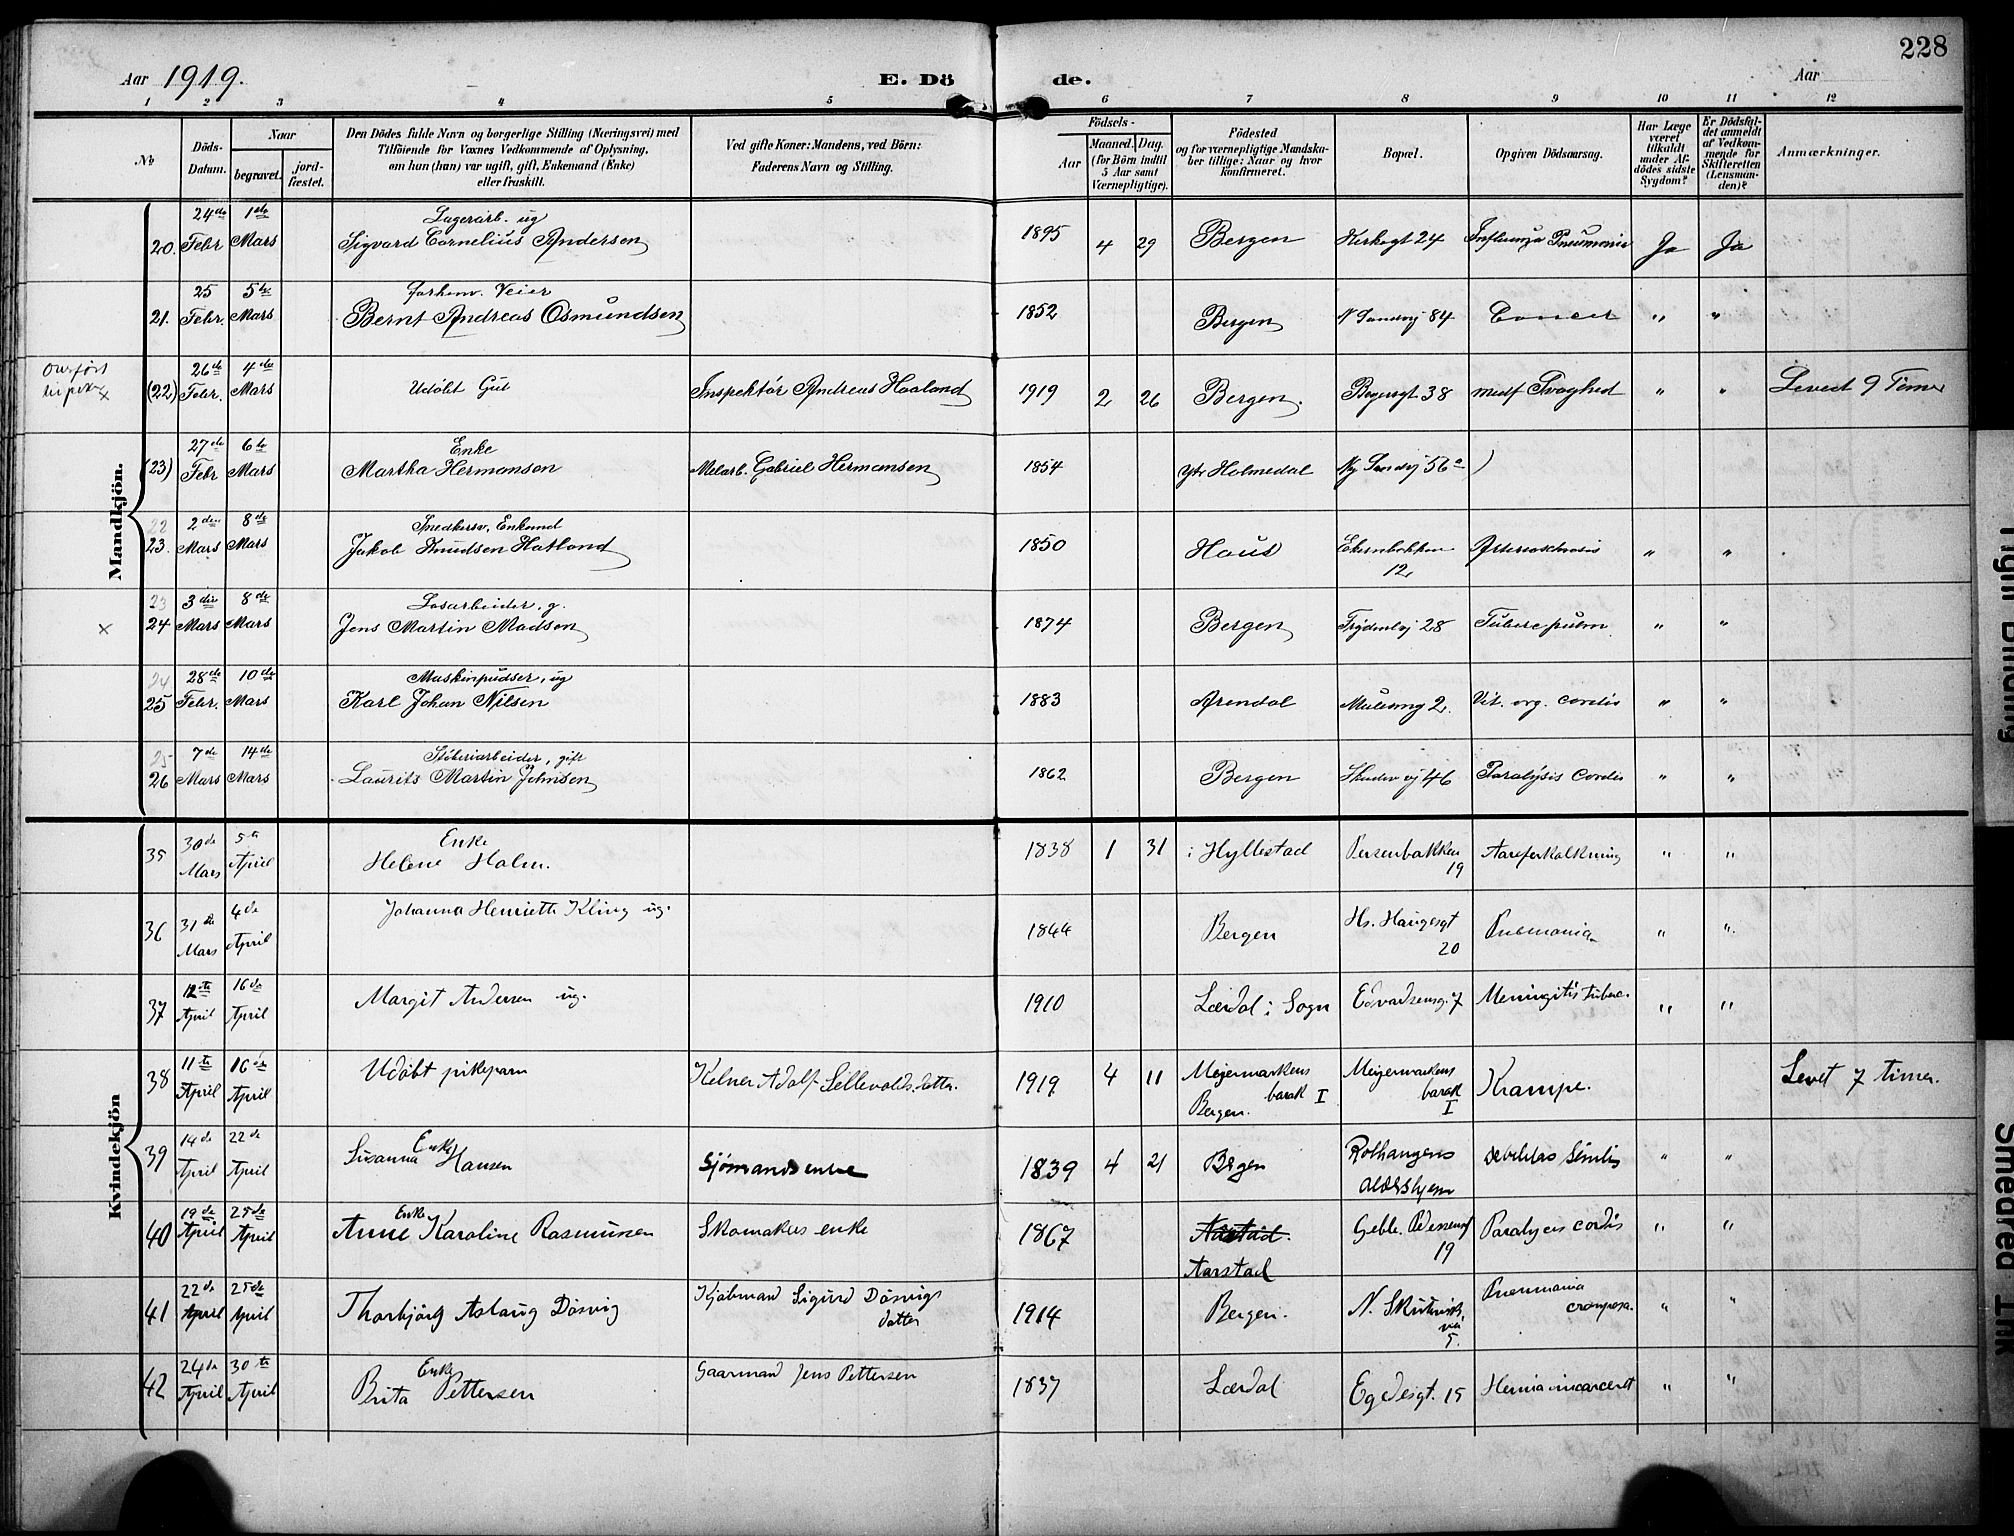 228
Aar 1919. E. Dö de. Aar
1 2 3 4 5 6 7 8 9 10 11 12
No
Döds-Datum.
Naar
begravet.
jord-fæstet.
Den Dödes fulde Navn og borgerlige Stilling (Næringsvei) med
Tilföiende for Voxnes Vedkommende af Oplysning,
om hun (han) var ugift, gift, Enkemand (Enke)
eller fraskilt.
Ved gifte Koner: Mandens, ved Börn:
Faderens Navn og Stilling.
Födsels-
Aar
Maaned. Dag.
(for Börn indtil
5 Aar samt
Værnepligtige).
Födested
og for værnepligtige Mandska-
ber tillige: Naar og hvor
konfirmeret.
Bopæl.
Opgiven Dödsaarsag.
Har Læge
været
tilkaldt
under Af-
dödes sidste
Sygdom?
Er Dödsfal-
det anmeldt
af Vedkom-
mende for
Skifteretten
(Lensman-
den)?
Anmærkninger.
Mandkjön.
20. 24de Febr 1ste Mars Lagerarb. ug Sigvard Cornelius Andersen 1895 4 29 Bergen 24 Influenza Pneumonie Ja Ja
21. 25 Febr. 5te Mars forhenv. Veier Bernt Andreas Osmundsen 1852 Bergen N Sandvj 84 Cancer " "
Overført
(22) 26de Febr. 4de Mars Udöbt Gut Inspektör Andreas Haaland 1919 2 26 Bergen. 38 medf Svaghed " " Levect 9 Timer
(23) 27de Febr 6te Mars Enke Martha Hermansen Gabriel Hermansen 1854 ytr Holmedal Ny Sandvj 56a )
22
23. 2den Mars 8de Mars Snedkersv, Enkemd Jakob Knudsen Hatland 1850 Haus 12, " "
23
24 3die Mars 8de Mars Losarbeider, g. Jens Martin Madsen 1874 Bergen 28 Tuberc pulm " "
24
25 28de Febr. 10de Mars Maskinpudser, ug Karl Johan Nilsen 1883 Arendal 2. Vit. org. cordis " "
25
26 7de Mars 14de Mars Stöberiarbeider, gift Laurits Martin Johnsen 1862 Bergen 46 Paralysis Cordis " "
Kvindekjön
35 30de Mars 5te April Enke Helene Holm. 1838 1 31 i Hyllestad Persenbakken 19 Aareforkalkning " "
36 31de Mars 4de April Johanna Henriette Kling ug. 1844 Bergen Hs. Haugesgt 20 Pnemonia " "
37 12te April 16de April Margit Andersen ug. 1910 Lærdal i Sogn Edvardsensg. 7 Meningitis tuberc. " "
38 11te April 16de April Udöbt pikeparn Kelner Adolf Sellevolds datter. 1919 4 11 Mejermarkens barak I Bergen. Meyermarkens barak I Krampe. Levet 7 timer.
39 14de April 22de April Enke Susanna Hansen Sjömandsenke 1839 4 21 Bergen Rothaugens Aldershjem " "
40 19de April 25de April Enke Anne Karoline Rasmussen Skomakers enke 1867 Aarstad Geble Pedersensg 19 Paralyses cordis " "
41 22de April 25de April Thorbjörg Aslaug Dösvig Kjöbmand Sigurd Dösvigs datter 1914 Bergen. N. Skutevik vei 5. Pneumonia crouposa. " "
42 24de April 30te April Enke Brita Pettersen Gaarmand Jens Pettersen 1837 Lærdal Egedesgt. 15 Hernia incarceret " "